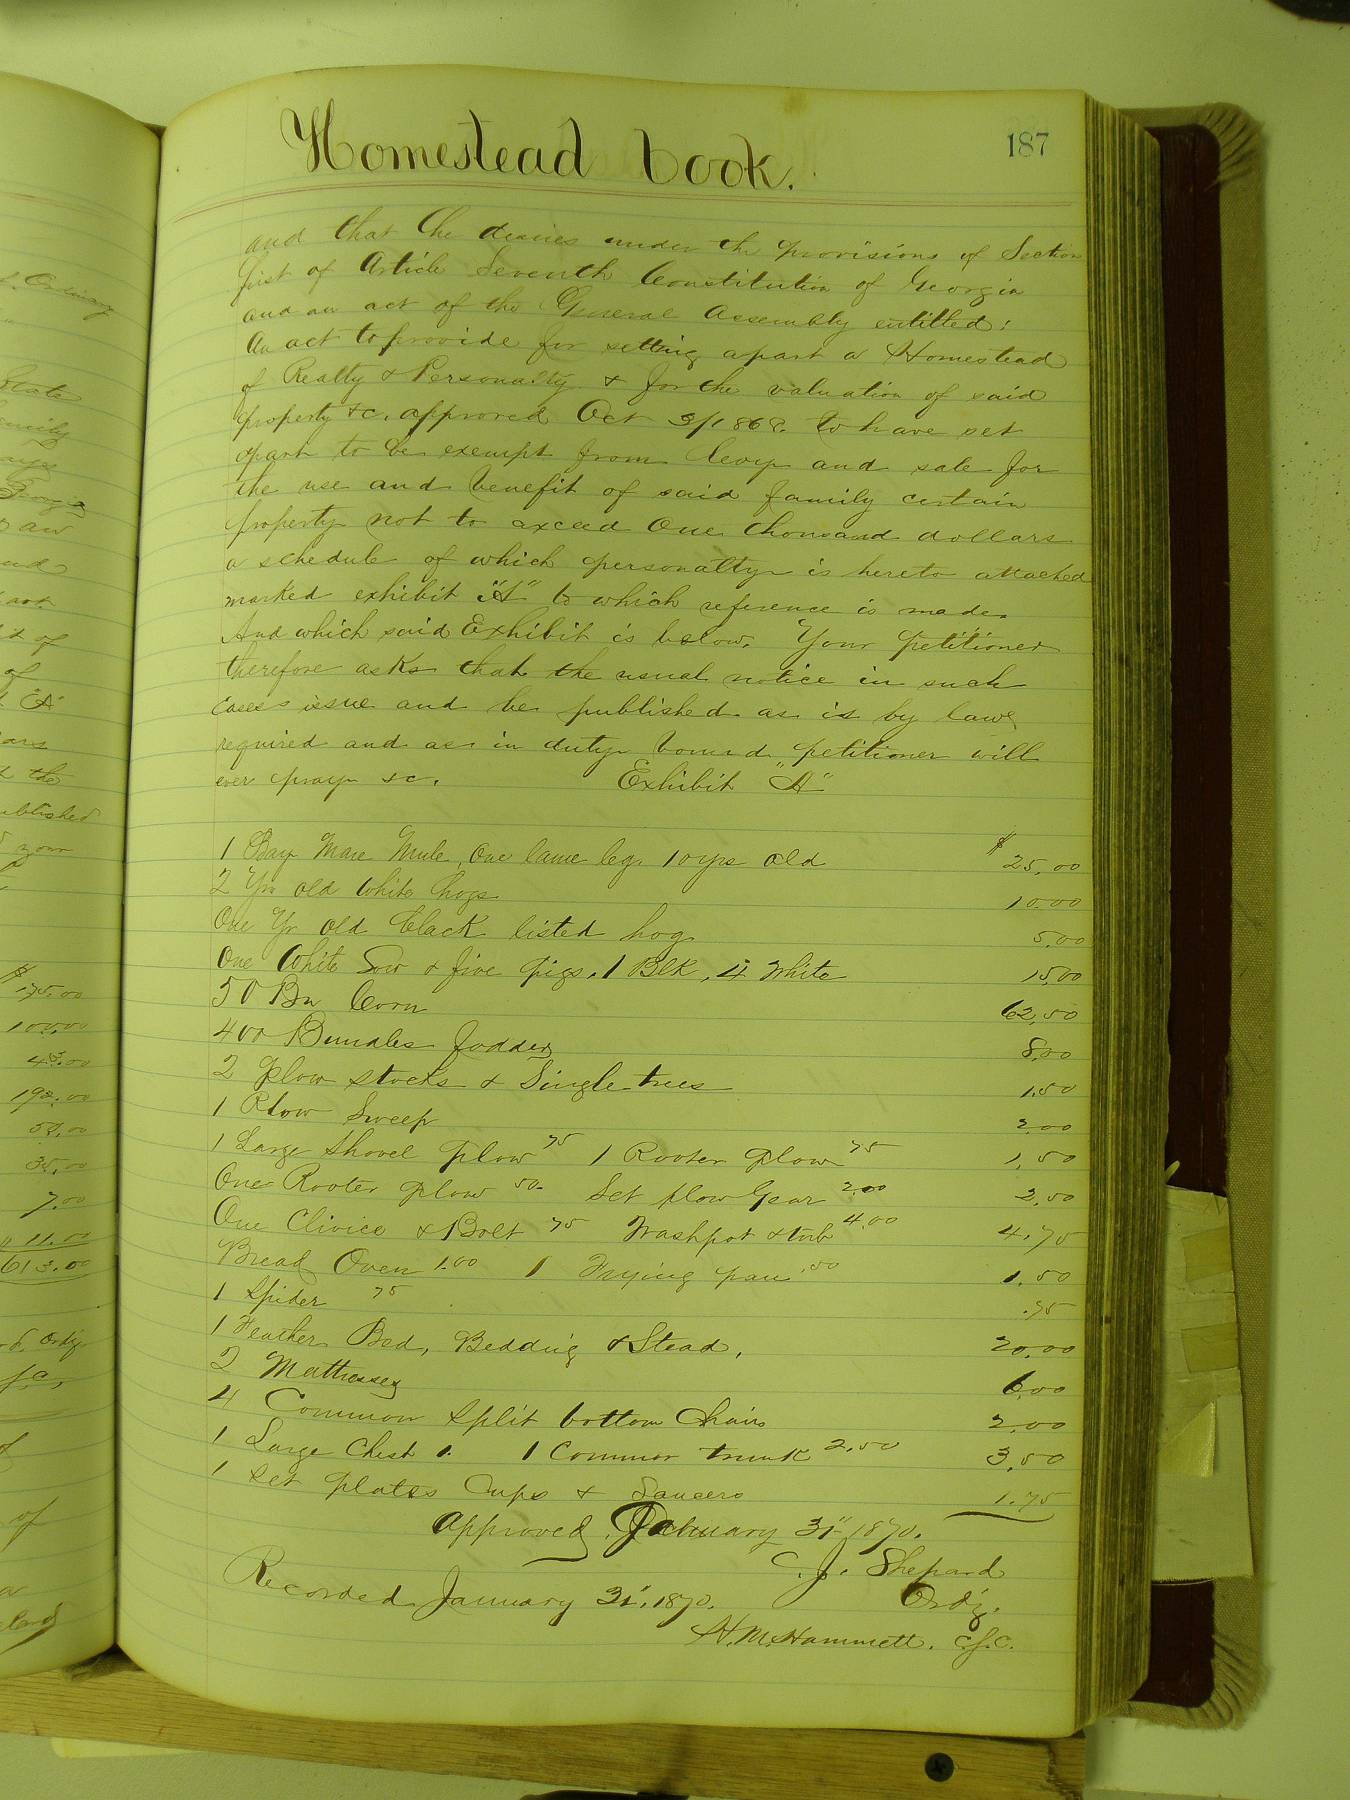 Homestead book.
187
and that he desires under the provisions of Section
first of Article Seventh Constitution of Georgia
and an act of the General Assembly entitled:
An act to provide for setting apart a Homestead
of Realty & Personalty & for the valuation of said
property &c. approved Oct 3/1868. to have set
apart to be exempt from levy and sale for
the use and benefit of said family certain
property not to exceed One thousand dollars
a schedule of which personalty is hereto attached
marked exhibit "A" to which reference is made.
And which said Exhibit is below. Your petitioner
therefore asks that the usual notice in such
cases issue and be published as is by law
required and as in duty bound petitioner will
ever pray &c. Exhibit "A"
1 Bay Mare Mule, One lame leg 10 yrs old $25.00
2 Yr old White hogs 10.00
One Yr old black listed hog 5.00
One White Sow & five pigs, 1 Blk, 4 White 15.00
50 Bu Corn 62.50
400 Bundles fodder 8.00
2 Plow stocks & Single-trees 1.50
1 Plow Sweep 2.00
1 Large Shovel plow 75 1 Rooter plow 75 1.50
One Rooter plow 50 Set plow Gear 2.00 2.50
One Clivice & Bolt 75 Washpot & tub 4.00 4.75
Bread Oven 1.00 1 Frying pan .50 1.50
1 Spider 75 .75
1 Feather Bed, Bedding & Stead, 20.00
2 Mattresses 6.00
4 Common Split bottom Chairs 2.00
1 Large Chest 1. 1 Common trunk 2.50 3.50
1 Set plates Cups & Saucers 1.75
Approved, January 31" 1870.
C. J. Shepard
Ordy.
Recorded January 31", 1870.
H. M. Hammett. C.S.C.
Ordinary
State
family
Georgia
and
act
of
of
"A"
the
published
your
$175.00
100.00
50.00
35.00
7.00
11.00
613.00
Ordy
of
of